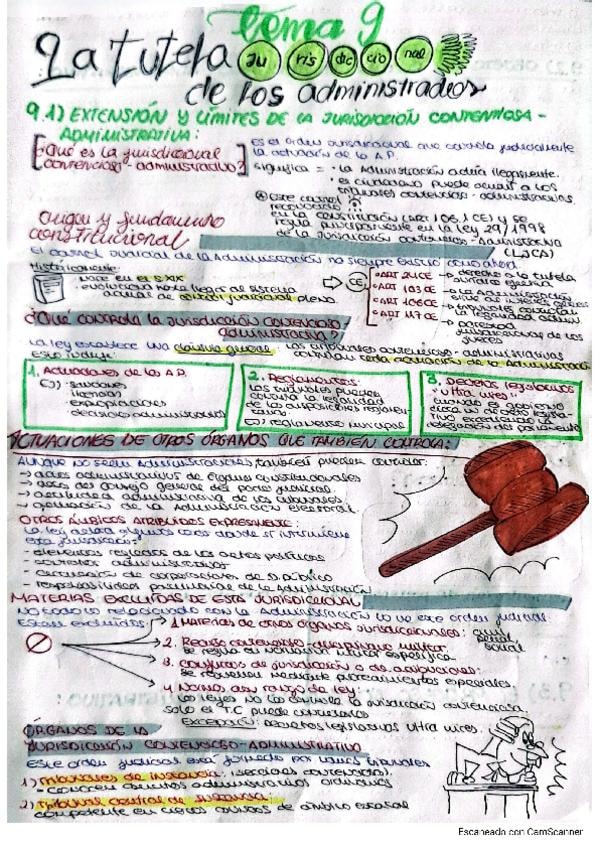 Tema 9
La tutela jurisdiccional
de los administrados
9.1) EXTENSIÓN Y LÍMITES DE LA JURISDICCIÓN CONTENCIOSA-
ADMINISTRATIVA:
¿Qué es la jurisdiccional
contencioso-administrativo?
Es el orden jurisdiccional que controla judicialmente
la actuación de la A.P.
significa = · la Administración actúa ilegalmente.
· el ciudadano puede acudir a los
tribunales contencioso-administrativas
Este control
reconocido
en la Constitución (ART 106.1 CE) y se
regula principalmente en la Ley 29/1998
de la Jurisdicción Contencioso-Administrativa
(LJCA)
origen y fundamento
constitucional
El control judicial de la Administración no siempre existió como ahora
Históricamente:
nace en el S.XIX
evolucionó hasta llegar al sistema
actual de control jurisdiccional pleno
CE
· ART 24 CE → derecho a la tutela
judicial efectiva
· ART 103 CE → la Administración
sirve al interés general
· ART 106 CE → tribunales controlan
· ART 117 CE →
jueces
¿Qué controla la jurisdicción contencioso-
administrativa?
La ley establece una cláusula general: los tribunales contencioso-administrativos
controlan toda actuación de la Administración
Esto incluye:
1. Actuaciones de la A.P.
EJ: - sanciones
- licencias
- expropiaciones
- decisiones administrativas
2. Reglamentos:
los tribunales pueden
controlar la legalidad
de las disposiciones reglamen-
tarias
EJ reglamento municipal
3. Decretos legislativos
"ultra vires":
cuando el gobierno
dicta un decreto legisla-
tivo excediendo la
delegación del parlamento
ACTUACIONES DE OTROS ÓRGANOS QUE TAMBIÉN CONTROLA:
Aunque no sean Administraciones, también pueden controlar:
→ actos administrativos de órganos constitucionales
→ actos del consejo general del poder judicial
→ actividad administrativa de los tribunales
→ actuación de la Administración electoral
OTROS ÁMBITOS ATRIBUIDOS EXPRESAMENTE:
La ley señala algunos casos donde sí interviene
esta jurisdicción:
- elementos reglados de los actos políticos
- contratos administrativos
- actuación de corporaciones de D. público
- responsabilidad patrimonial de la Administración
MATERIAS EXCLUIDAS DE ESTA JURISDICCIONAL
No todo lo relacionado con la Administración lo ve este orden judicial
Están excluidas:
1. Materias de otros órganos jurisdiccionales: civil
penal
social
2. Recurso contencioso-disciplinario militar
Se regula en normativa militar específica
3. Conflictos de jurisdicción o de atribuciones:
Se resuelven mediante procedimientos especiales.
4. Normas con rango de ley:
Las leyes no las controla la jurisdicción contenciosa
solo el TC puede controlarlas
Excepción: decretos legislativos ultra vires
ÓRGANOS DE LA
JURISDICCIÓN CONTENCIOSO-ADMINISTRATIVA
Este orden judicial está formado por varios tribunales
1) Tribunales de instancia: (secciones contencioso).
- conocen asuntos administrativos ordinarios
2) Tribunal central de instancia:
competente en ciertas causas de ámbito estatal
Escaneado con CamScanner